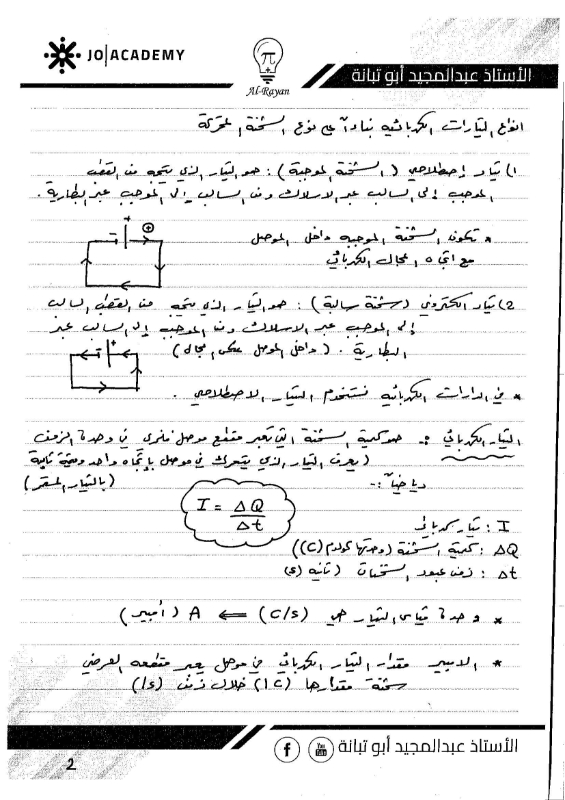 JO|ACADEMY
π
Al-Rayan
الأستاذ عبدالمجيد أبو تبانة
انواع التيارات الكهربائيه بناءاً على نوع الشحنة المتحركة
1) تيار إصطلاحي (الشحنة الموجبة) : هو التيار الذي يتجه من القطب
الموجب إلى السالب عبر الاسلاك ومن السالب إلى الموجب عبر البطارية .
* تكون الشحنة الموجبه داخل الموصل
مع اتجاه المجال الكهربائي
2) تيار الكتروني (شحنة سالبة) : هو التيار الذي يتجه من القطب السالب
إلى الموجب عبر الاسلاك ومن الموجب إلى السالب عبر
البطارية . (داخل الموصل عكس المجال)
* في الدارات الكهربائيه نستخدم التيار الاصطلاحي .
التيار الكهربائي :- هو كمية الشحنة التي تعبر مقطع موصل فلزي في وحدة الزمن
(يعرف التيار الذي يتحرك في موصل بإتجاه واحد وقيمة ثابتة
(بالتيار المستمر)
رياضياً :-
I = ΔQ / Δt
I : تيار كهربائي
ΔQ : كمية الشحنة (وحدتها كولوم (C))
Δt : زمن عبور الشحنات (ثانيه (s)
* وحدة قياس التيار هي (C/s) ⇐ A (أمبير)
* الامبير مقدار التيار الكهربائي في موصل يعبر مقطعه العرضي
شحنة مقدارها (1C) خلال زمن (1s)
الأستاذ عبدالمجيد أبو تبانة
2